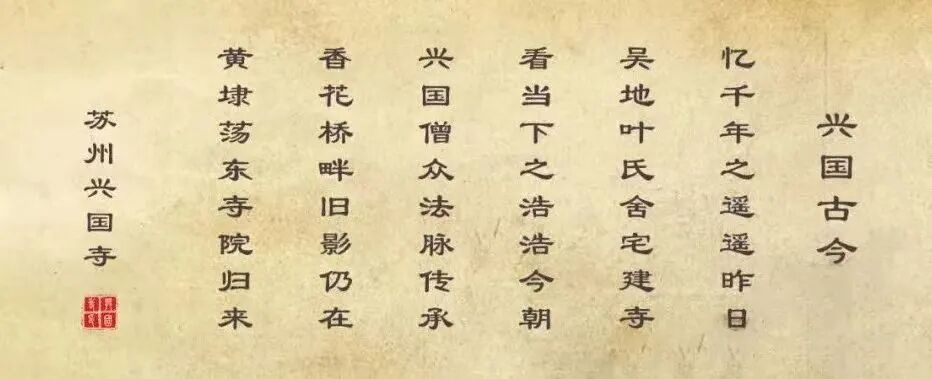 兴国古今
忆千年之遥遥昨日
吴地叶氏舍宅建寺
看当下之浩浩今朝
兴国僧众法脉传承
香花桥畔旧影仍在
黄埭荡东寺院归来
苏州兴国寺